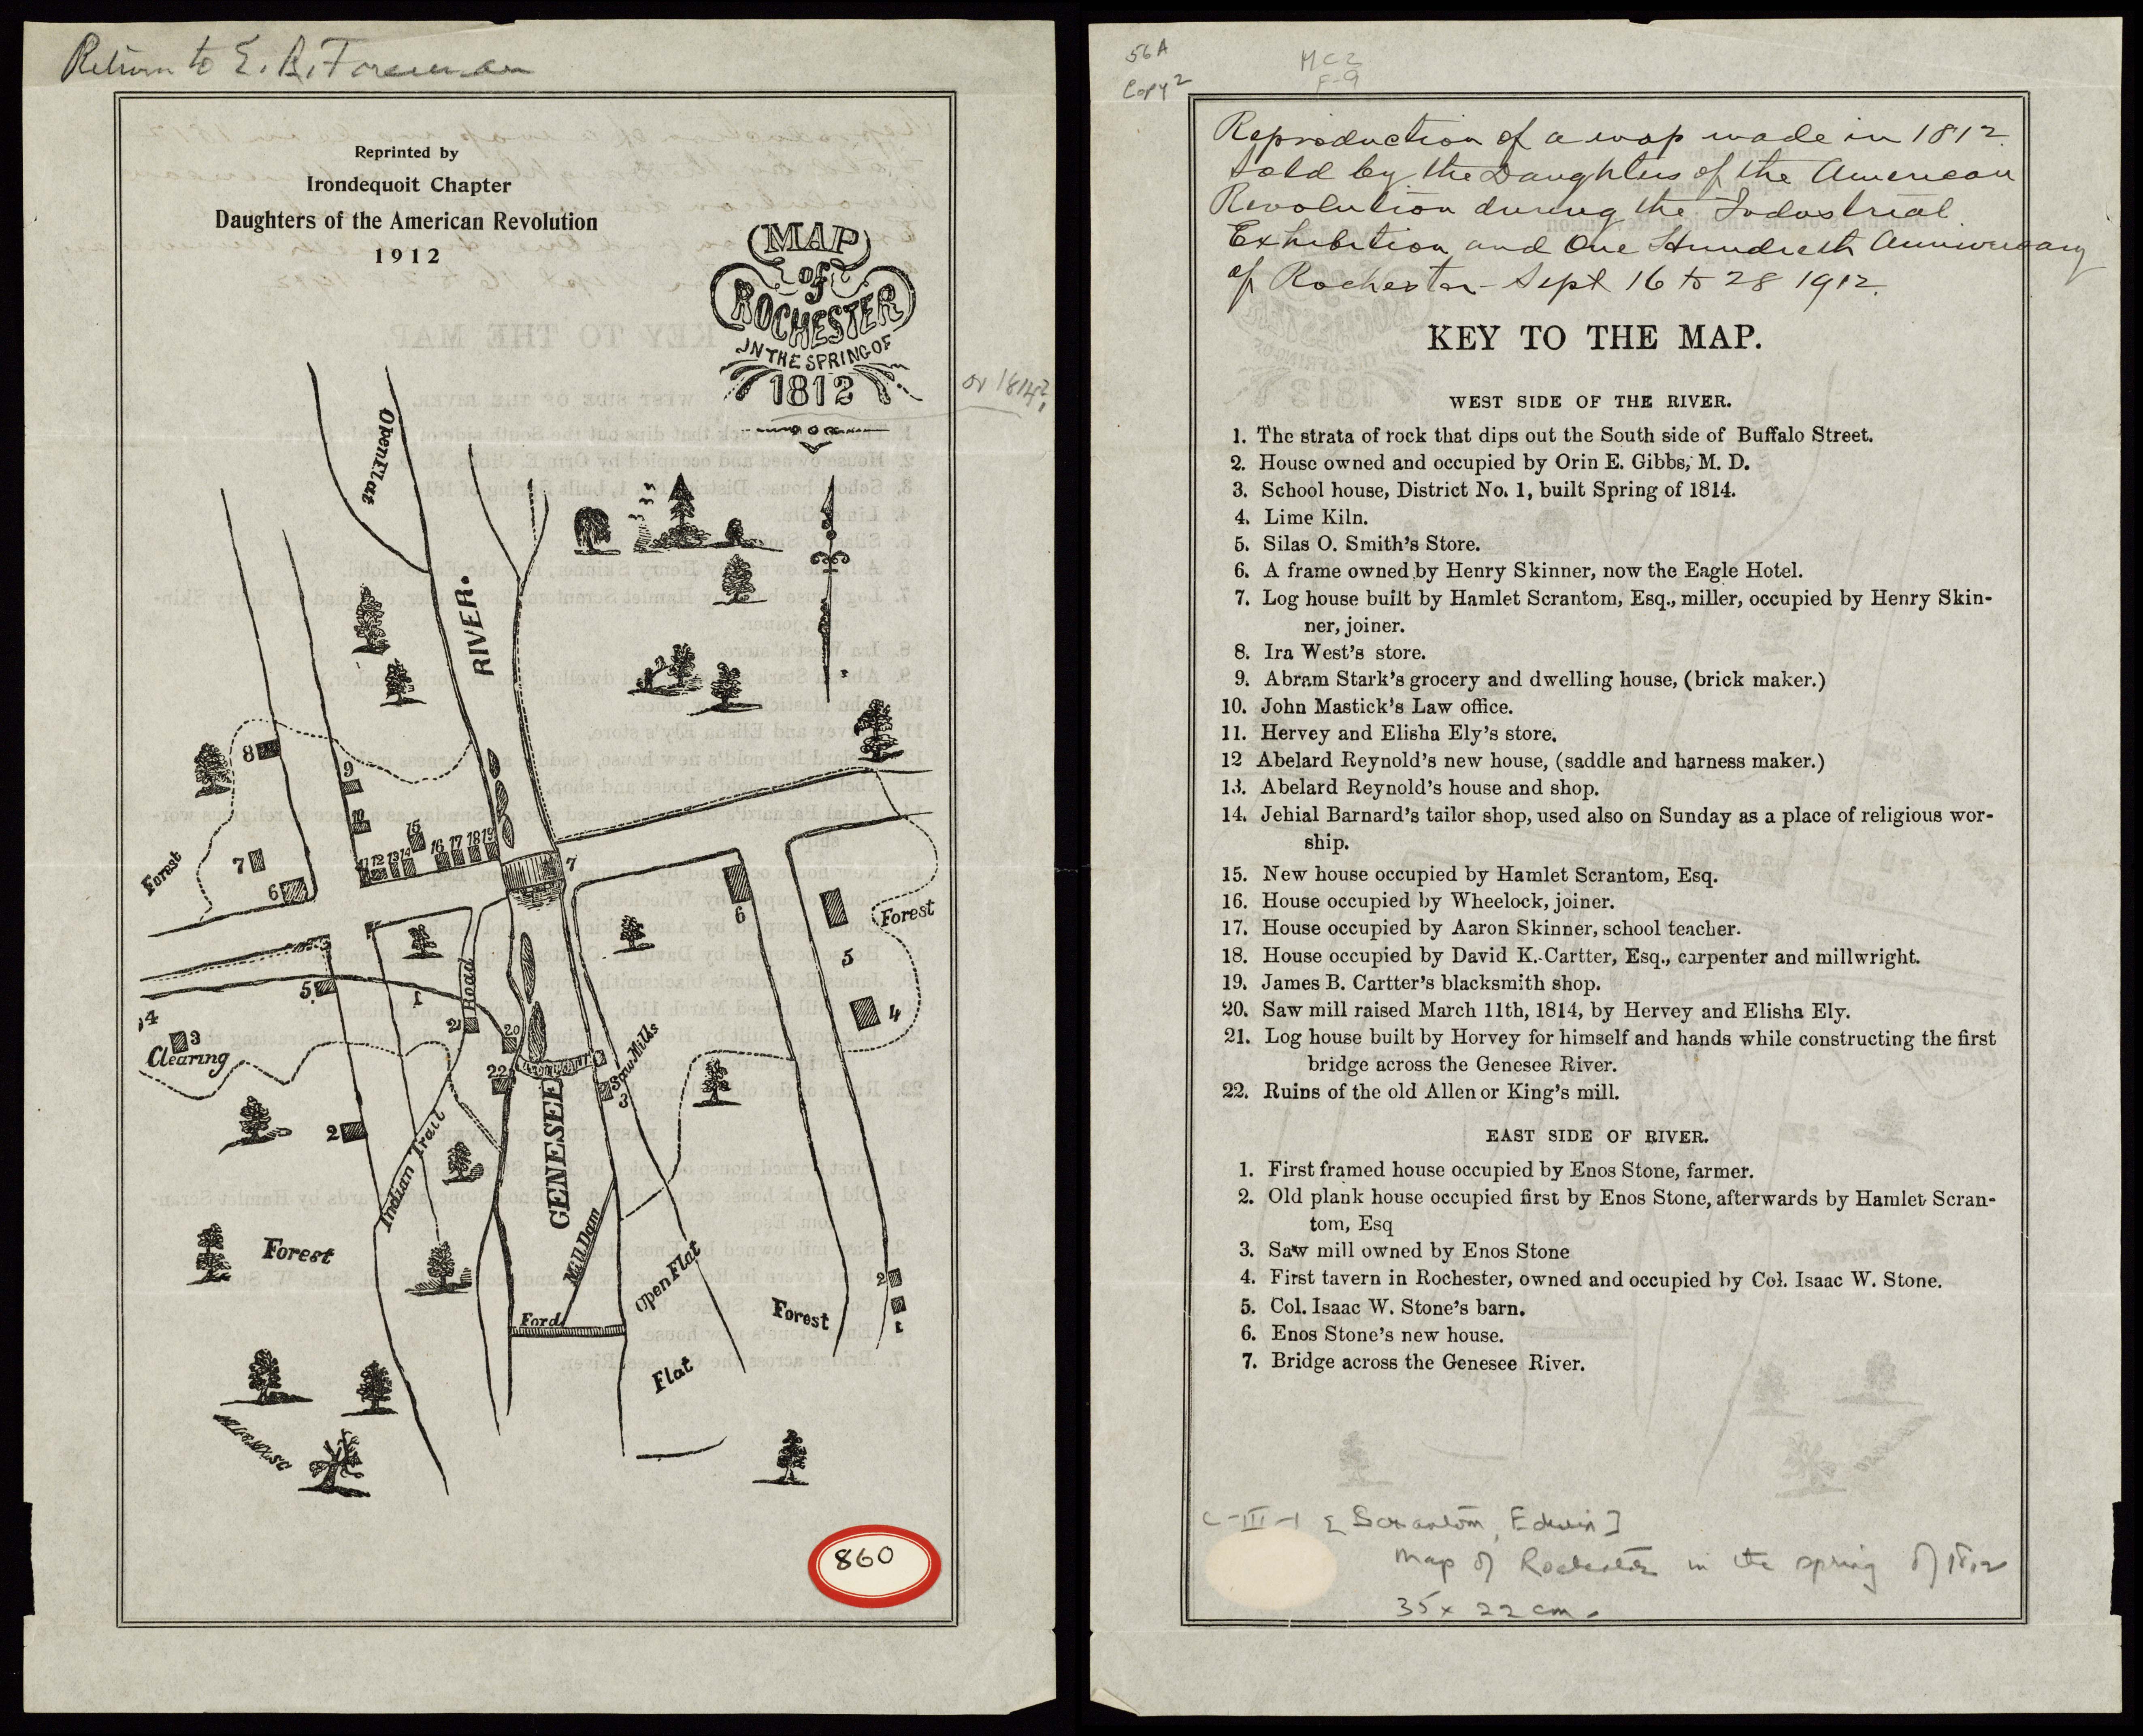 Return to E. R. Foreman
Reprinted by
Irondequoit Chapter
Daughters of the American Revolution
1912
MAP
of
ROCHESTER
IN THE SPRING OF
1812
or 1814?
Open Flat
RIVER.
8
9
10
15
11 12 13 14
16 17 18 19
7
7
6
Forest
6
Forest
5
5
1
Road
21
20
4
14
3
Clearing
22
Saw Mills
3
GENESEE
2
Indian Trail
Mill Dam
Open Flat
Forest
Forest
2
1
Ford
Flat
860
56A
Copy 2
MC2
F-9
Reproduction of a map made in 1812.
Sold by the Daughters of the American
Revolution during the Industrial
Exhibition and One Hundredth Anniversary
of Rochester - Sept 16 to 28 1912.
KEY TO THE MAP.
WEST SIDE OF THE RIVER.
1. The strata of rock that dips out the South side of Buffalo Street.
2. House owned and occupied by Orin E. Gibbs, M. D.
3. School house, District No. 1, built Spring of 1814.
4. Lime Kiln.
5. Silas O. Smith's Store.
6. A frame owned by Henry Skinner, now the Eagle Hotel.
7. Log house built by Hamlet Scrantom, Esq., miller, occupied by Henry Skin-
ner, joiner.
8. Ira West's store.
9. Abram Stark's grocery and dwelling house, (brick maker.)
10. John Mastick's Law office.
11. Hervey and Elisha Ely's store.
12 Abelard Reynold's new house, (saddle and harness maker.)
13. Abelard Reynold's house and shop.
14. Jehial Barnard's tailor shop, used also on Sunday as a place of religious wor-
ship.
15. New house occupied by Hamlet Scrantom, Esq.
16. House occupied by Wheelock, joiner.
17. House occupied by Aaron Skinner, school teacher.
18. House occupied by David K. Cartter, Esq., carpenter and millwright.
19. James B. Cartter's blacksmith shop.
20. Saw mill raised March 11th, 1814, by Hervey and Elisha Ely.
21. Log house built by Horvey for himself and hands while constructing the first
bridge across the Genesee River.
22. Ruins of the old Allen or King's mill.
EAST SIDE OF RIVER.
1. First framed house occupied by Enos Stone, farmer.
2. Old plank house occupied first by Enos Stone, afterwards by Hamlet Scran-
tom, Esq
3. Saw mill owned by Enos Stone
4. First tavern in Rochester, owned and occupied by Col. Isaac W. Stone.
5. Col. Isaac W. Stone's barn.
6. Enos Stone's new house.
7. Bridge across the Genesee River.
C-III-1 [Scrantom, Edwin]
Map of Rochester in the spring of 1812
35 x 22 cm.